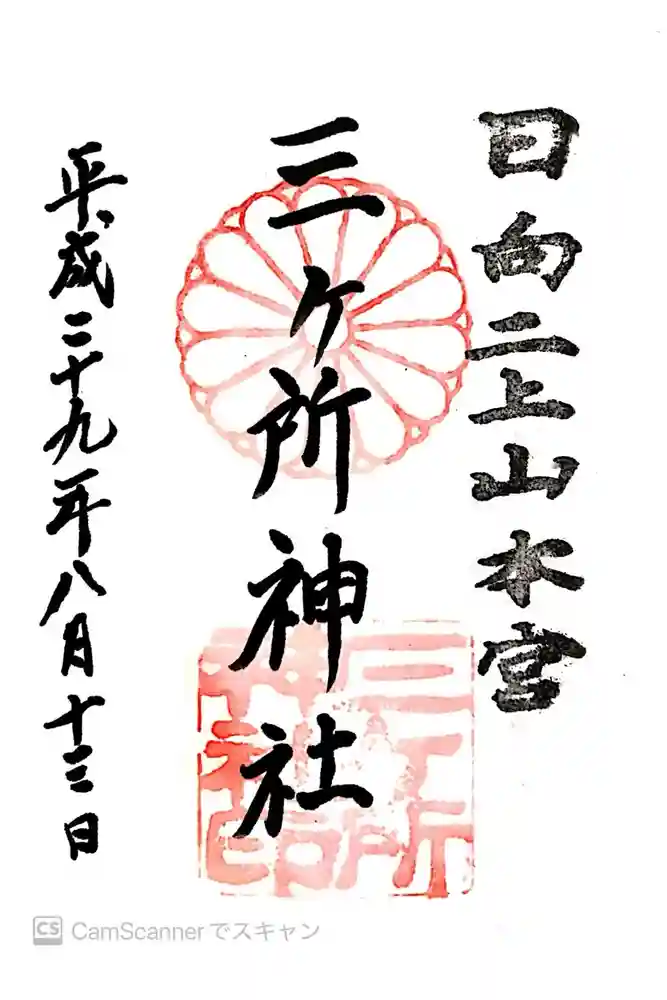 日向二上山本宮
三ケ所神社
平成二十九年八月十三日
CS CamScannerでスキャン